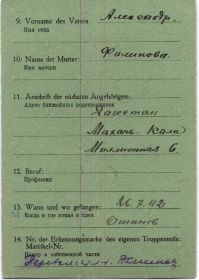 9. Vorname des Vaters: Александр.
Имя отца
10. Name der Mutter: Филипова.
Имя матери
11. Anschrift der nächsten Angehörigen:
Адрес ближайших родственников
Дагестан
Махачь-Кала
Миллионная 6
12. Beruf:
Профессия
13. Wann und wo gefangen: 26.7.42
Когда и где попал в плен
14. Nr. der Erkennungsmarke des eigenen Truppenteils:
Matrikel-Nr.
Номер в собственной части